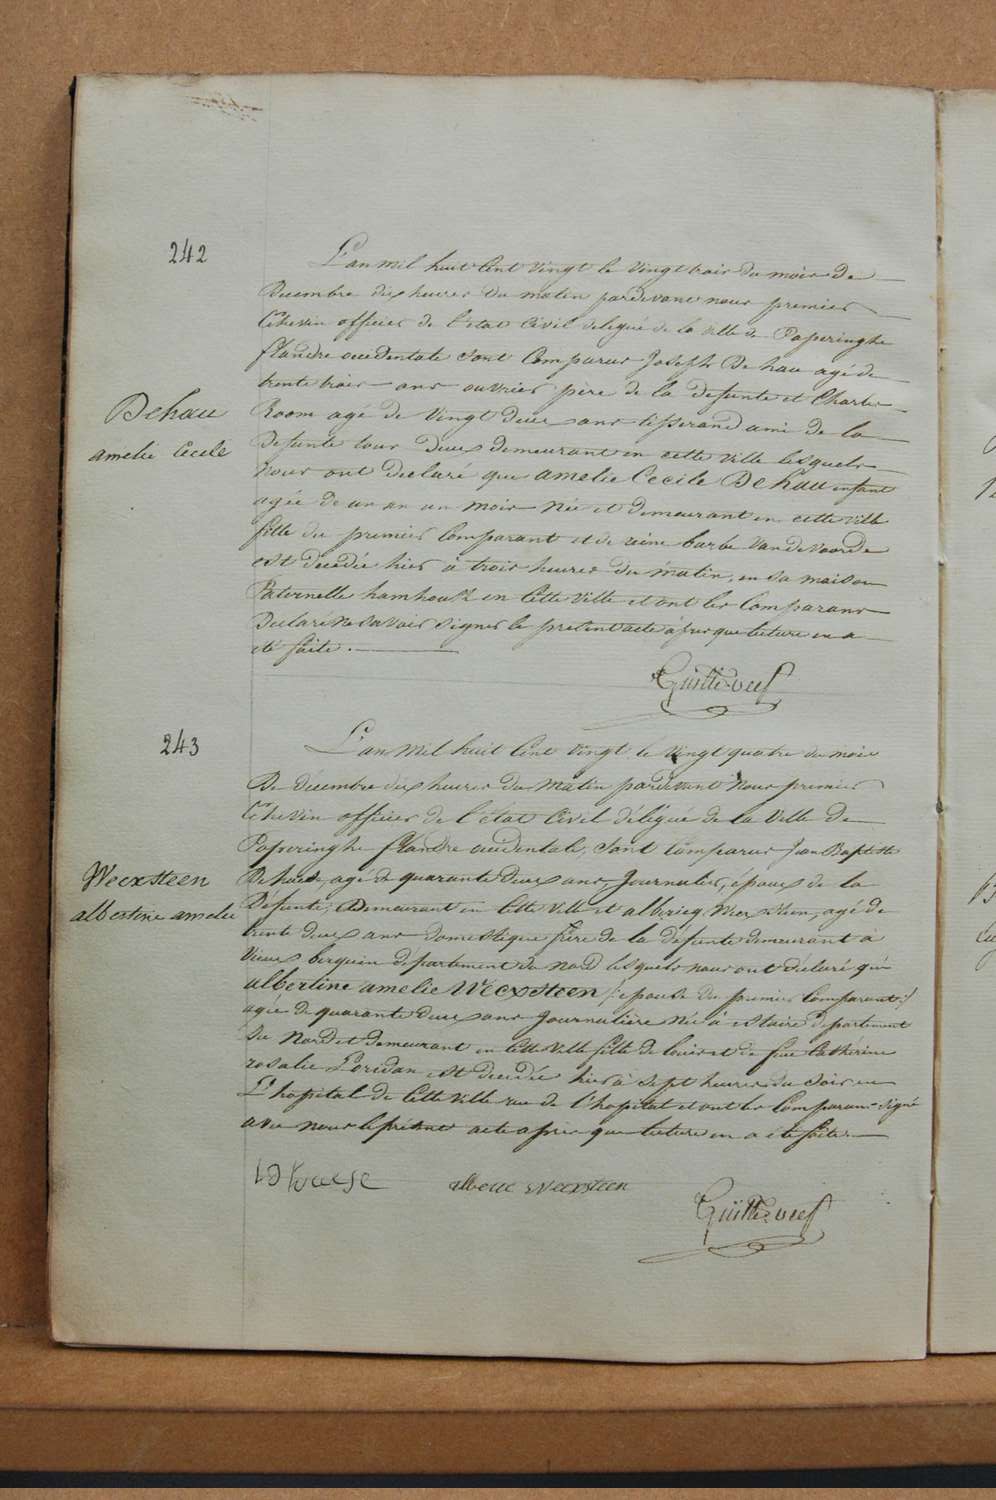 242
L'an mil huit Cent vingt le vingt trois du mois de
Decembre dix heures du matin pardevant nous premier
Echevin officier de l'état Civil delegué de la ville de Poperinghe
flandre occidentale sont Comparus Joseph De hau agé de
trente trois ans ouvrier père de la defunte et Charles
Room agé de vingt deux ans tisserand ami de la
Defunte tous deux demeurant en cette ville lesquels
Dehau
amelie Cecile
nous ont declaré que amelie Cecile De hau enfant
agée de un an un mois née et demeurant en cette ville
fille du premier Comparant et de reine barbe Vandevoorde
est decedée hier à trois heures du matin, en sa maison
Paternelle hamhouk en Cette ville et ont les Comparans
Declaré ne savoir signer le present acte après que lecture en a
été faite.
243
L'an mil huit Cent vingt le vingt quatre du mois
De décembre dix heures du matin pardevant nous premier
Echevin officier de l'état Civil délégué de la ville de
Poperinghe flandre occidentale, sont Comparus Jean Baptiste
agé de quarante deux ans Journalier, époux de la
Défunte, Demeurant en Cette ville et alberiq Weexsteen, agé de
trente deux ans domestique frère de la défunte demeurant à
Weexsteen
albertine amelie
Vieux berquin département du nord lesquels nous ont déclaré que
albertine amelie Weexsteen /: epouse du premier Comparant :/
agée de quarante deux ans Journalière née à estaire département
du Nord et demeurant en Cette ville fille de louis et de feue Catherine
rosalie Loridan est decedée hier à sept heures du soir en
L'hopital de Cette ville rue de l'hopital et ont les Comparans signé
avec nous le présent acte après que lecture en a été faite.
Weexsteen